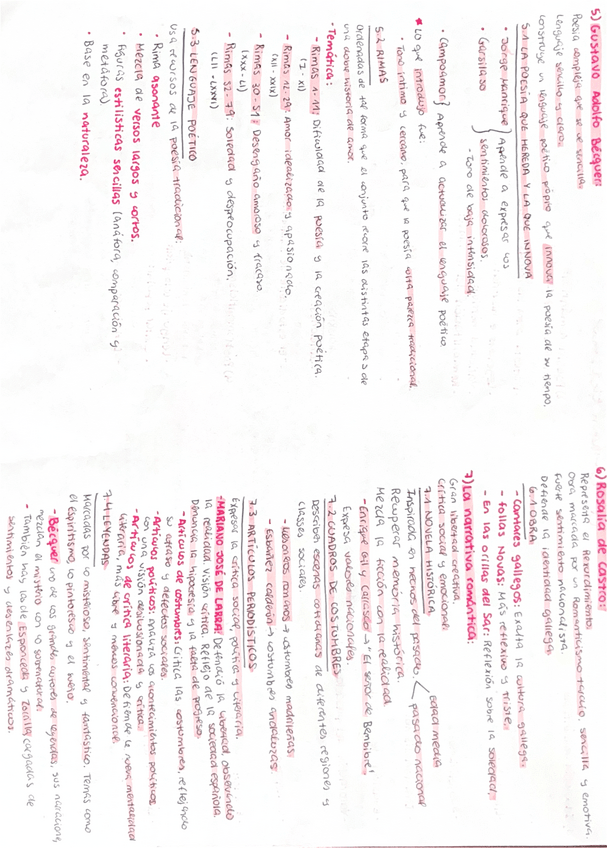 5) Gustavo Adolfo Bécquer:
Poesía compleja que se ve sencilla.
Lenguaje sencillo y claro.
Construye un lenguaje poético propio que innova la poesía de su tiempo.
5.1 LA POESÍA QUE HEREDA Y LA QUE INNOVA
• Jorge Manrique
• Garsilaso
Aprende a expresar los
sentimientos dolorosos.
- Tono de baja intensidad.
• Campoamor } Aprende a actualizar el lenguaje poético.
* Lo que introdujo fue:
• Tono íntimo y cercano, para que la poesía culta parezca tradicional.
5.2 RIMAS
Ordenadas de tal forma que el conjunto recorre las distintas etapas de
una doble historia de amor.
- Temática:
- Rimas 1-11: Dificultad de la poesía y la creación poética.
(I - XI)
- Rimas 12-29: Amor idealizado y apasionado.
(XII - XXIX)
- Rimas 30-51: Desengaño amoroso y fracaso.
(XXX-LI)
- Rimas 52-79: Soledad y despreocupación.
(LII - LXXVI)
5.3 LENGUAJE POÉTICO
Usa recursos de la poesía tradicional:
• Rima asonante
• Mezcla de versos largos y cortos.
• Figuras estilísticas sencillas (anáfora, comparación y
metáfora)
• Base en la naturaleza.
6) Rosalía de Castro:
Representa el Rexurdimento.
Obra marcada por un Romanticismo tardío, sencilla y emotiva.
Fuerte sentimiento nacionalista.
Defiende la identidad gallega.
6.1 OBRA
- Cantares gallegos: Exalta la cultura gallega.
- Follas Novas: Más reflexivo y triste.
- En las orillas del Sar: Reflexión sobre la soledad.
7) La narrativa romántica:
Gran libertad creativa.
Crítica social y emocional.
7.1 NOVELA HISTÓRICA
Inspirada en hechos del pasado.
edad media
pasado nacional
Recuperar memoria histórica.
Mezcla la ficción con la realidad
- Enrique Gil y Carrasco → "El señor de Bembibre"
Expresa valores nacionales.
7.2 CUADROS DE COSTUMBRES
Describen escenas cotidianas de diferentes regiones y
clases sociales
- Mesonero romanos → costumbres madrileñas.
- Estébanez calderón → costumbres andaluzas.
7.3 ARTÍCULOS PERIODÍSTICOS
Expresa la crítica social, política y literaria.
- MARIANO JOSÉ DE LARRA: Defendió la libertad observando
la realidad. Visión crítica. Reflejo de la sociedad española.
Denuncia la hipocresía y la falta de progreso.
- Artículos de costumbres: Critica las costumbres, reflejando
su atraso y defectos sociales.
- Artículos políticos: analiza los acontecimientos políticos
con una visión desilusionada y crítica.
- Artículos de crítica literaria: Defiende la nueva mentalidad
literaria, más libre y menos convencional.
7.4 LEYENDAS:
Marcadas por lo misterioso, sentimental y fantástico. Temas como
el espiritismo, lo pintoresco y el sueño.
- Bécquer uno de los grandes autores de leyendas, sus narraciones
mezclan el misterio con lo sobrenatural.
- También hay las de Espronceda y Zorrilla cargadas de
sentimientos y desenlaces dramáticos.